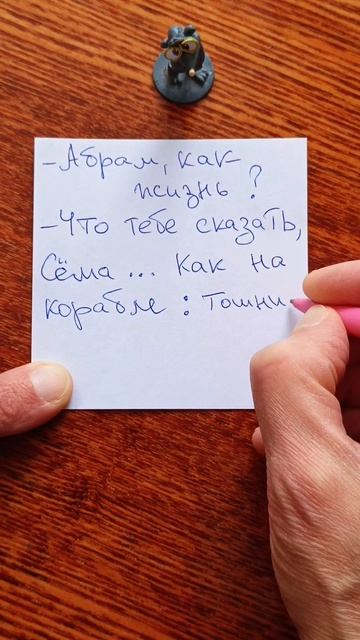 - Абрам, как
жизнь ?
- Что тебе сказать,
Сёма ... Как на
корабле : Тошни